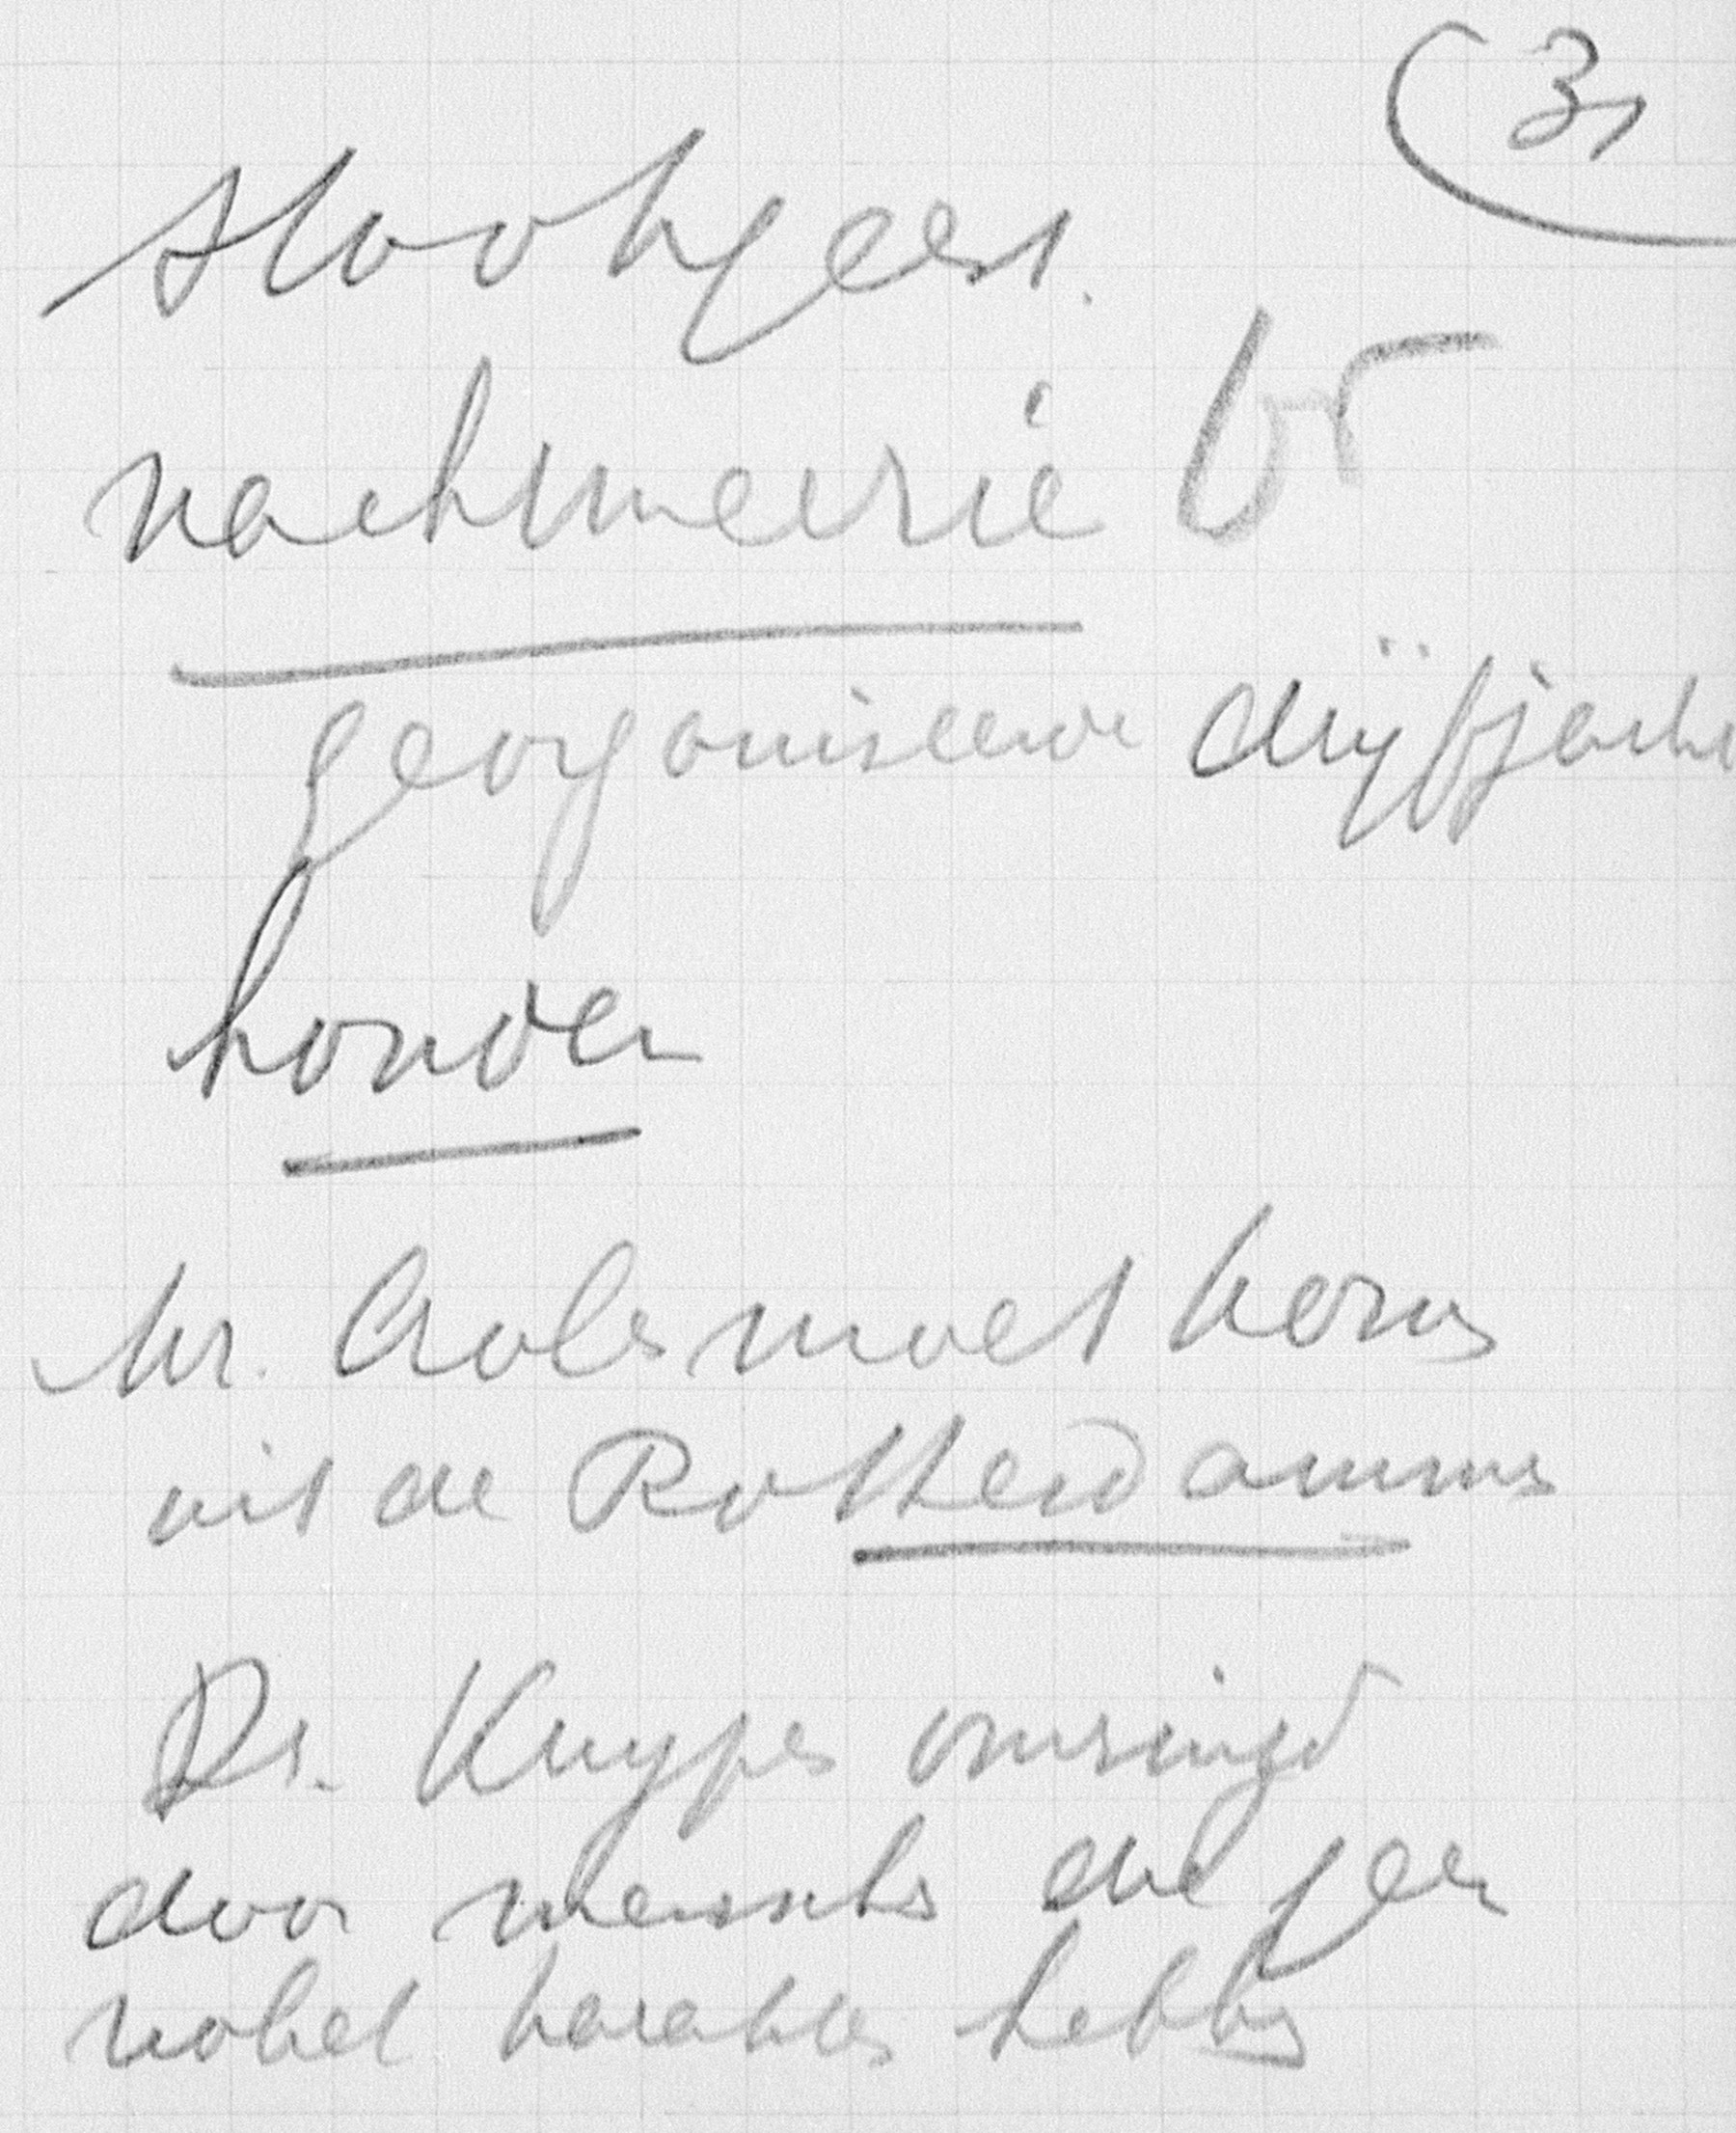 31
slootgeest.
nachtmerrie
georganiseerde drijfjacht
honden
Mr. moet
uit de Rotterdammer
Dr. Kuyper omringd
door menschen die geen
nobel karakter hebben